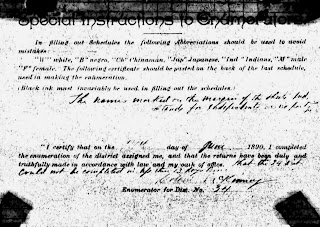 Special Instructions to Enumerators
In filling out Schedules the following Abbreviations should be used to avoid
mistakes:
"W" white, "B" negro, "Ch" Chinaman, "Jap" Japanese, "Ind" Indians, "M" male
"F" female. The following certificate should be pasted on the back of the last schedule,
used in making the enumeration.
(Black ink must invariably be used in filling out the schedules.)
The names marked on the margin of the sheets Ind,
stands for Independent or no party
"I certify that on the day of June 1890, I completed
the enumeration of the district assigned me, and that the returns have been duly and
truthfully made in accordance with law and my oath of office. that the 24 Dist
Could not be completed in less than 12 days time
Enumerator for Dis. No. 24